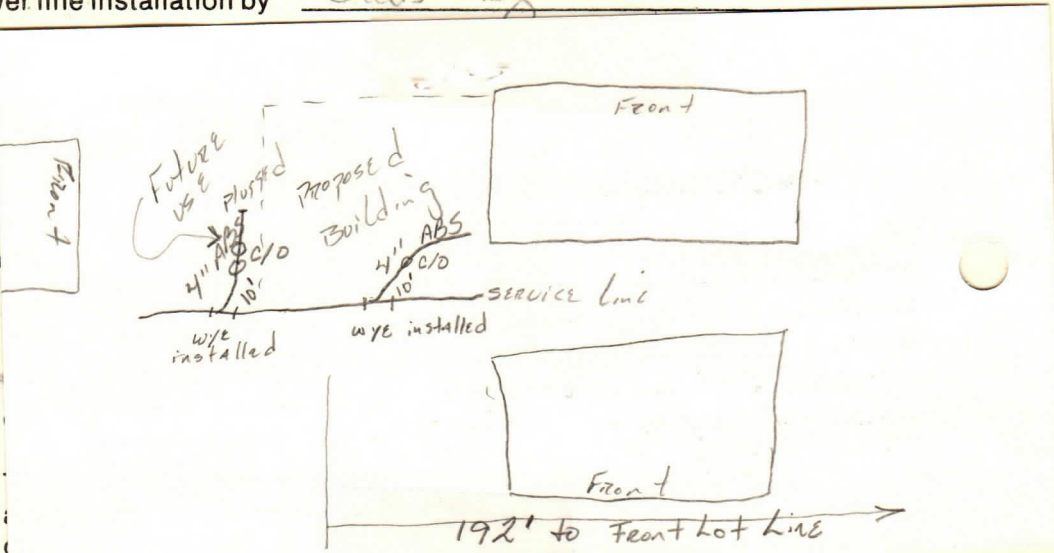 er line installation by
Front
Front
Future
use
plugged
Proposed
Building
ABS
4" C/O
10'
ABS
4" C/O
10'
SERVICE Line
wye
installed
wye installed
Front
192' to Front Lot Line